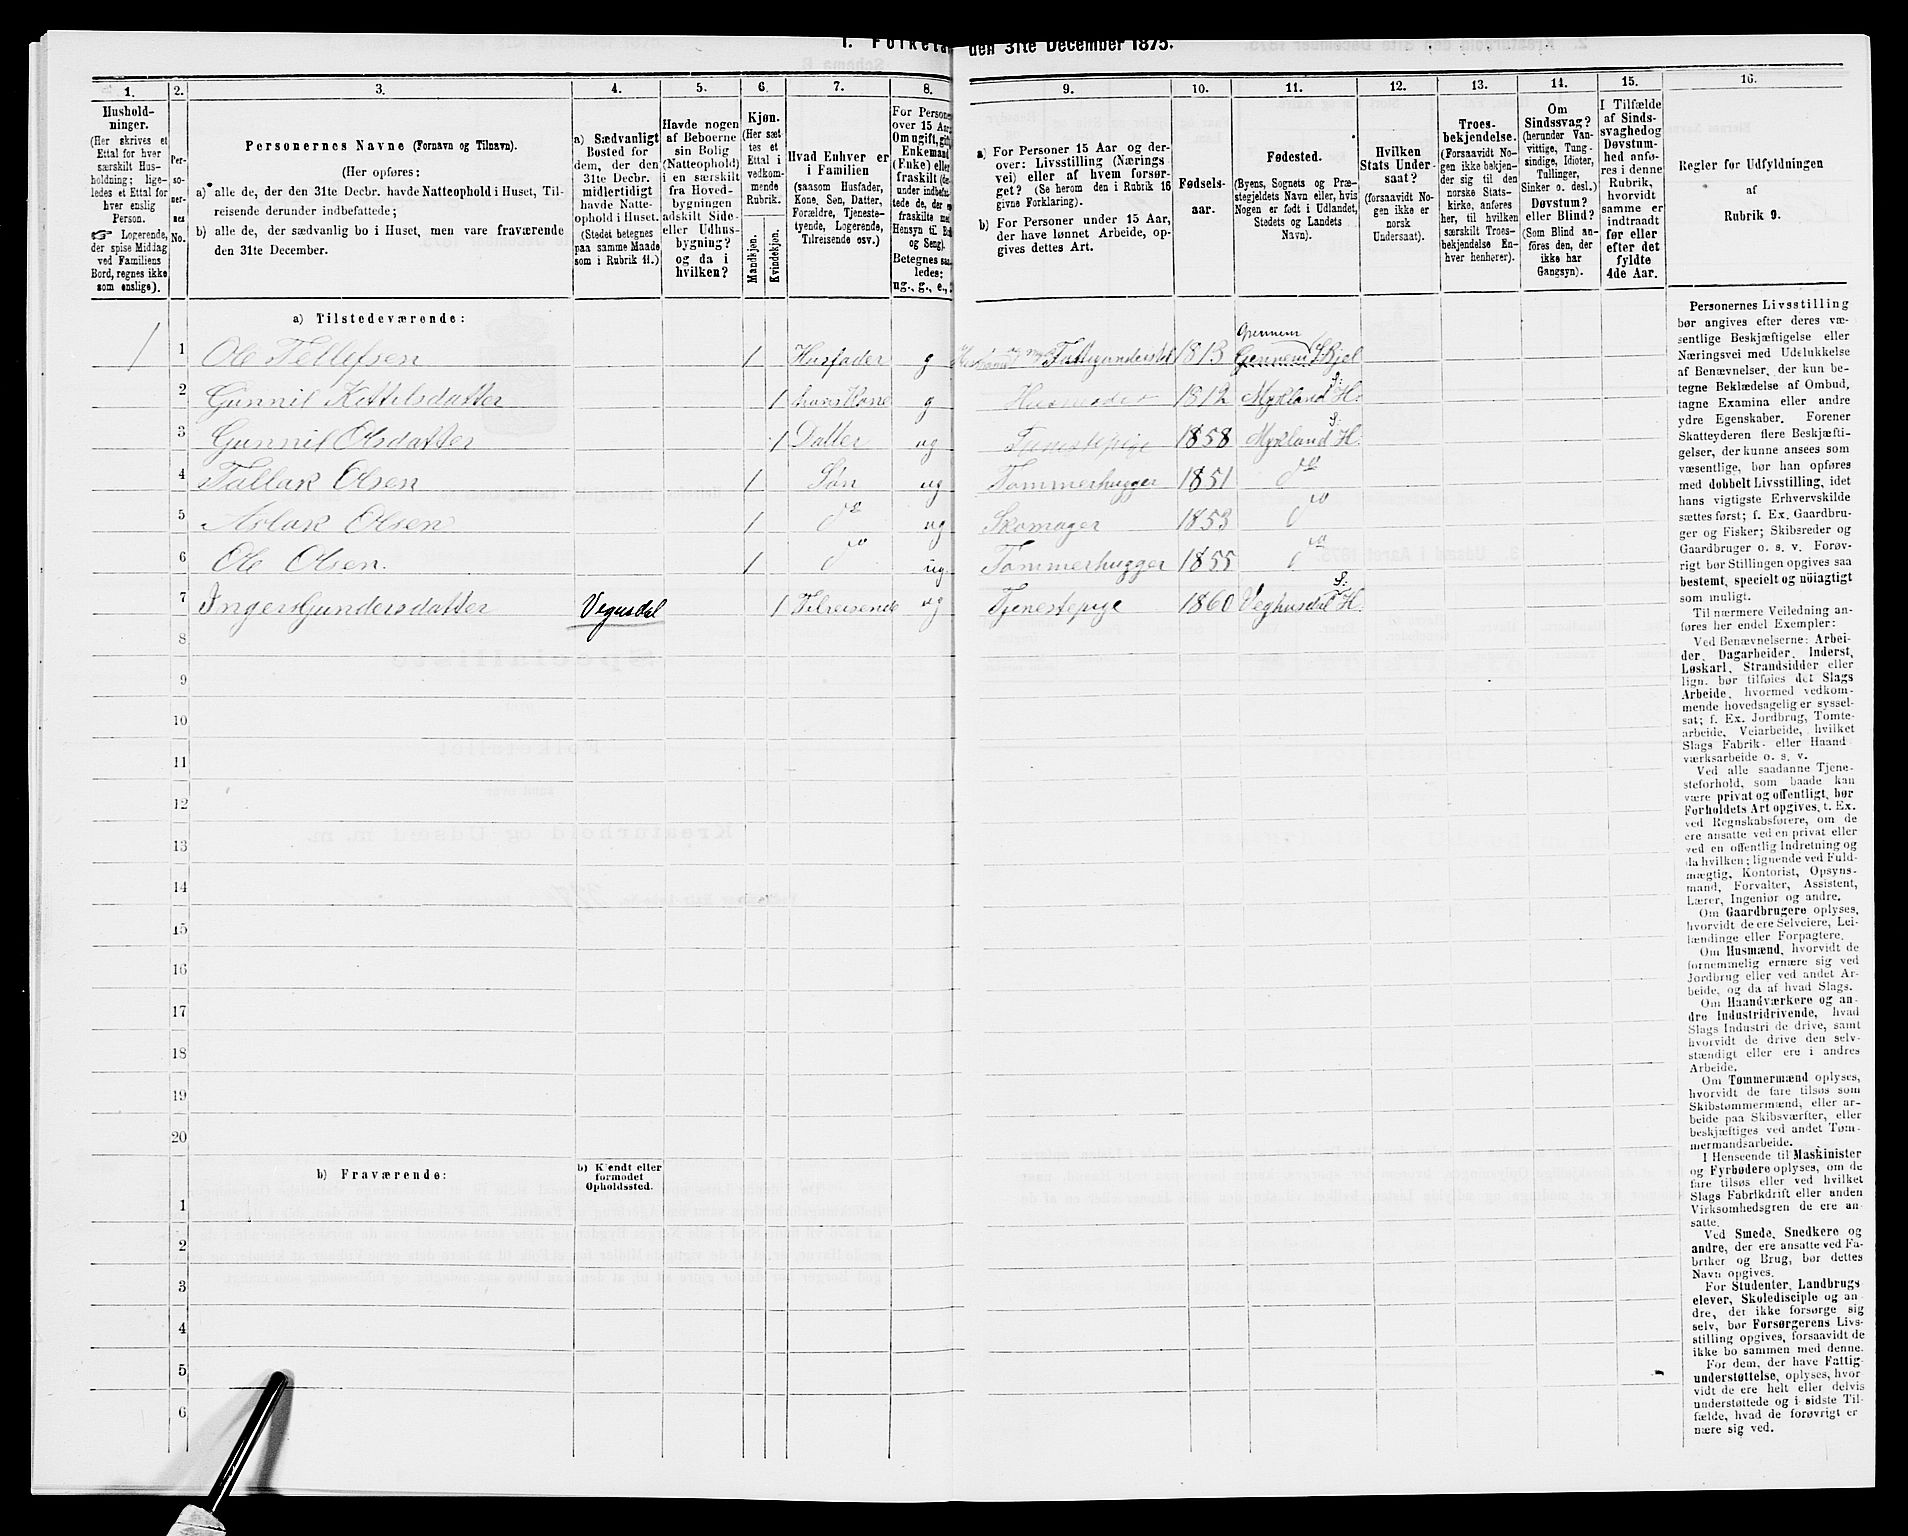 1. Folketæ
den 31te December 1875.
1. 2. 3. 4. 5. 6. 7. 8. 9. 10. 11. 12. 13. 14. 15. 16.
Hushold-
ninger.
(Her skrives et
Ettal for hver
særskilt Hus-
holdning; lige-
ledes et Ettal for
hver enslig
Person.
☞ Logerende,
der spise Middag
ved Familiens
Bord, regnes ikke
som enslige).
Per-
so-
ner-
nes
No.
Personernes Navne (Fornavn og Tilnavn).
(Her opføres:
a) alle de, der den 31te Decbr. havde Natteophold i Huset, Til-
reisende derunder indbefattede;
b) alle de, der sædvanlig bo i Huset, men vare fraværende
den 31te December.
a) Sædvanligt
Bosted for
dem, der den
31te Decbr.
midlertidigt
havde Natte-
ophold i Huset.
(Stedet betegnes
paa samme Maade
som i Rubrik 11.)
Havde nogen
af Beboerne
sin Bolig
(Natteophold)
i en særskilt
fra Hoved-
bygningen
adskilt Side-
eller Udhus-
bygning?
og da i
hvilken?
Kjøn.
(Her sæt-
tes et
Ettal i
vedkom-
mende
Rubrik.
Mandkjøn.
Kvindekjøn.
Hvad Enhver er
i Familien
(saasom Husfader,
Kone, Søn, Datter,
Forældre, Tjeneste-
tyende, Logerende,
Tilreisende osv.)
For Persone
over 15 Aar
Om ugift, gif
Enkemand
(Enke) elle
fraskilt (der
under indbefat-
tede de, der e
fraskilte me
Hensyn til B
og Seng).
Betegnes saa
ledes:
ug., g., e.,
a) For Personer 15 Aar og der-
over: Livsstilling (Nærings
vei) eller af hvem forsør-
get? (Se herom den i Rubrik 16
givne Forklaring).
b) For Personer under 15 Aar,
der have lønnet Arbeide, op-
gives dettes Art.
Fødsels-
aar.
Fødested.
(Byens, Sognets og Præ-
stegjeldets Navn eller, hvis
Nogen er født i Udlandet,
Stedets og Landets
Navn).
Hvilken
Stats Under-
saat?
(forsaavidt No-
gen ikke er
norsk
Undersaat).
Troes-
bekjendelse.
(Forsaavidt No-
gen ikke bekjen-
der sig til den
norske Stats-
kirke, anføres
her, til hvilken
særskilt Troes-
bekjendelse En-
hver henhører).
Om
Sindssvag?
(herunder Van-
vittige, Tung-
sindige, Idioter,
Tullinger,
Sinker o. desl.)
Døvstum?
eller Blind?
(Som Blind an-
føres den, der
ikke har
Gangsyn).
I Tilfælde
af Sinds-
svaghed og
Døvstum-
hed anfø-
res i denne
Rubrik,
hvorvidt
samme er
indtraadt
før eller
efter det
fyldte
4de Aar.
Regler for Udfyldningen
af
Rubrik 9.
a) Tilstedeværende:
1 1 Ole Tellefsen 1 Husfader g Fattigunderstøl 1813 Grennem Gjennem S Bjel
2 Gunnil Kittilsdatter 1 hans Kone g 1812 Mykland S: H.
3 Gunnil Olsdatter 1 Datter ug Tjenestepige 1858 Mykland S: H.
4 Tallak Olsen 1 Søn ug Tømmerhugger 1851 do
5 Aslak Olsen 1 do ug Skomager 1853 do
6 Ole Olsen. 1 do ug. Tømmerhugger 1855 do
7 Inger Gundersdatter Vegusdal 1 Tilreisende ug Tjenestepige 1860 Veghusdal S: H.
8
9
10
11
12
13
14
15
16
17
18
19
20
b) Fraværende:
b) Kjendt eller
formodet
Opholdssted.
1
2
3
4
5
6
Personernes Livsstilling
bør angives efter deres væ-
sentlige Beskjæftigelse eller
Næringsvei med Udelukkelse
af Benævnelser, der kun be-
tegne Beklædelse af Ombud,
tagne Examina eller andre
ydre Egenskaber. Forener
Skatteyderen flere Beskjæfti-
gelser, der kunne ansees som
væsentlige, bør han opføres
med dobbelt Livsstilling, idet
hans vigtigste Erhvervskilde
sættes først; f. Ex. Gaardbru-
ger og Fisker; Skibsreder og
Gaardbruger o. s. v. Forøv-
rigt bør Stillingen opgives saa
bestemt, specielt og nöiagtigt
som muligt.
Til nærmere Veiledning an-
føres her endel Exempler:
Ved Benævnelserne: Arbei-
der, Dagarbeider, Inderst,
Løskarl, Strandsidder eller
lign. bør tilføies det Slags
Arbeide, hvormed vedkom-
mende hovedsagelig er syssel-
sat; f. Ex. Jordbrug, Tomte-
arbeide, Veiarbeide, hvilket
Slags Fabrik- eller Haand
værksarbeide o. s. v.
Ved alle saadanne Tjene-
steforhold, som baade kan
være privat og offentligt, bør
Forholdets Art opgives, t. Ex.
ved Regnskabsførere, om de
ere ansatte ved en privat eller
ved en offentlig Indretning og
da hvilken; lignende ved Fuld-
mægtig, Kontorist, Opsyns-
mand, Forvalter, Assistent,
Lærer, Ingeniør og andre.
Om Gaardbrugere oplyses,
hvorvidt de ere Selveiere, Lei-
lændinge eller Forpagtere.
Om Husmænd, hvorvidt de
fornemmelig ernære sig ved
Jordbrug eller ved andet Ar-
beide, og da af hvad Slags.
Om Haandværkere og an-
dre Industridrivende, hvad
Slags Industri de drive, samt
hvorvidt de drive den selv-
stændigt eller ere i andres
Arbeide.
Om Tømmermænd oplyses,
hvorvidt de fare tilsøs som
Skibstømmermænd, eller ar-
beide paa Skibsværfter, eller
beskjæftiges ved andet Tøm-
mermandsarbeide.
I Henseende til Maskinister
og Fyrbødere oplyses, om de
fare tilsøs eller ved hvilket
Slags Fabrikdrift eller anden
Virksomhedsgren de ere an-
satte.
Ved Smede, Snedkere og
andre, der ere ansatte ved Fa-
briker og Brug, bør dettes
Navn opgives.
For Studenter, Landbrugs
elever, Skoledisciple og an-
dre, der ikke forsørge sig
selv, bør Forsørgerens Livs-
stilling opgives, forsaavidt de
ikke bo sammen med denne.
For dem, der have Fattig-
understøttelse, oplyses, hvor
vidt de ere helt eller delvis
understøttede og i sidste Til-
fælde, hvad de forøvrigt er
nære sig ved.